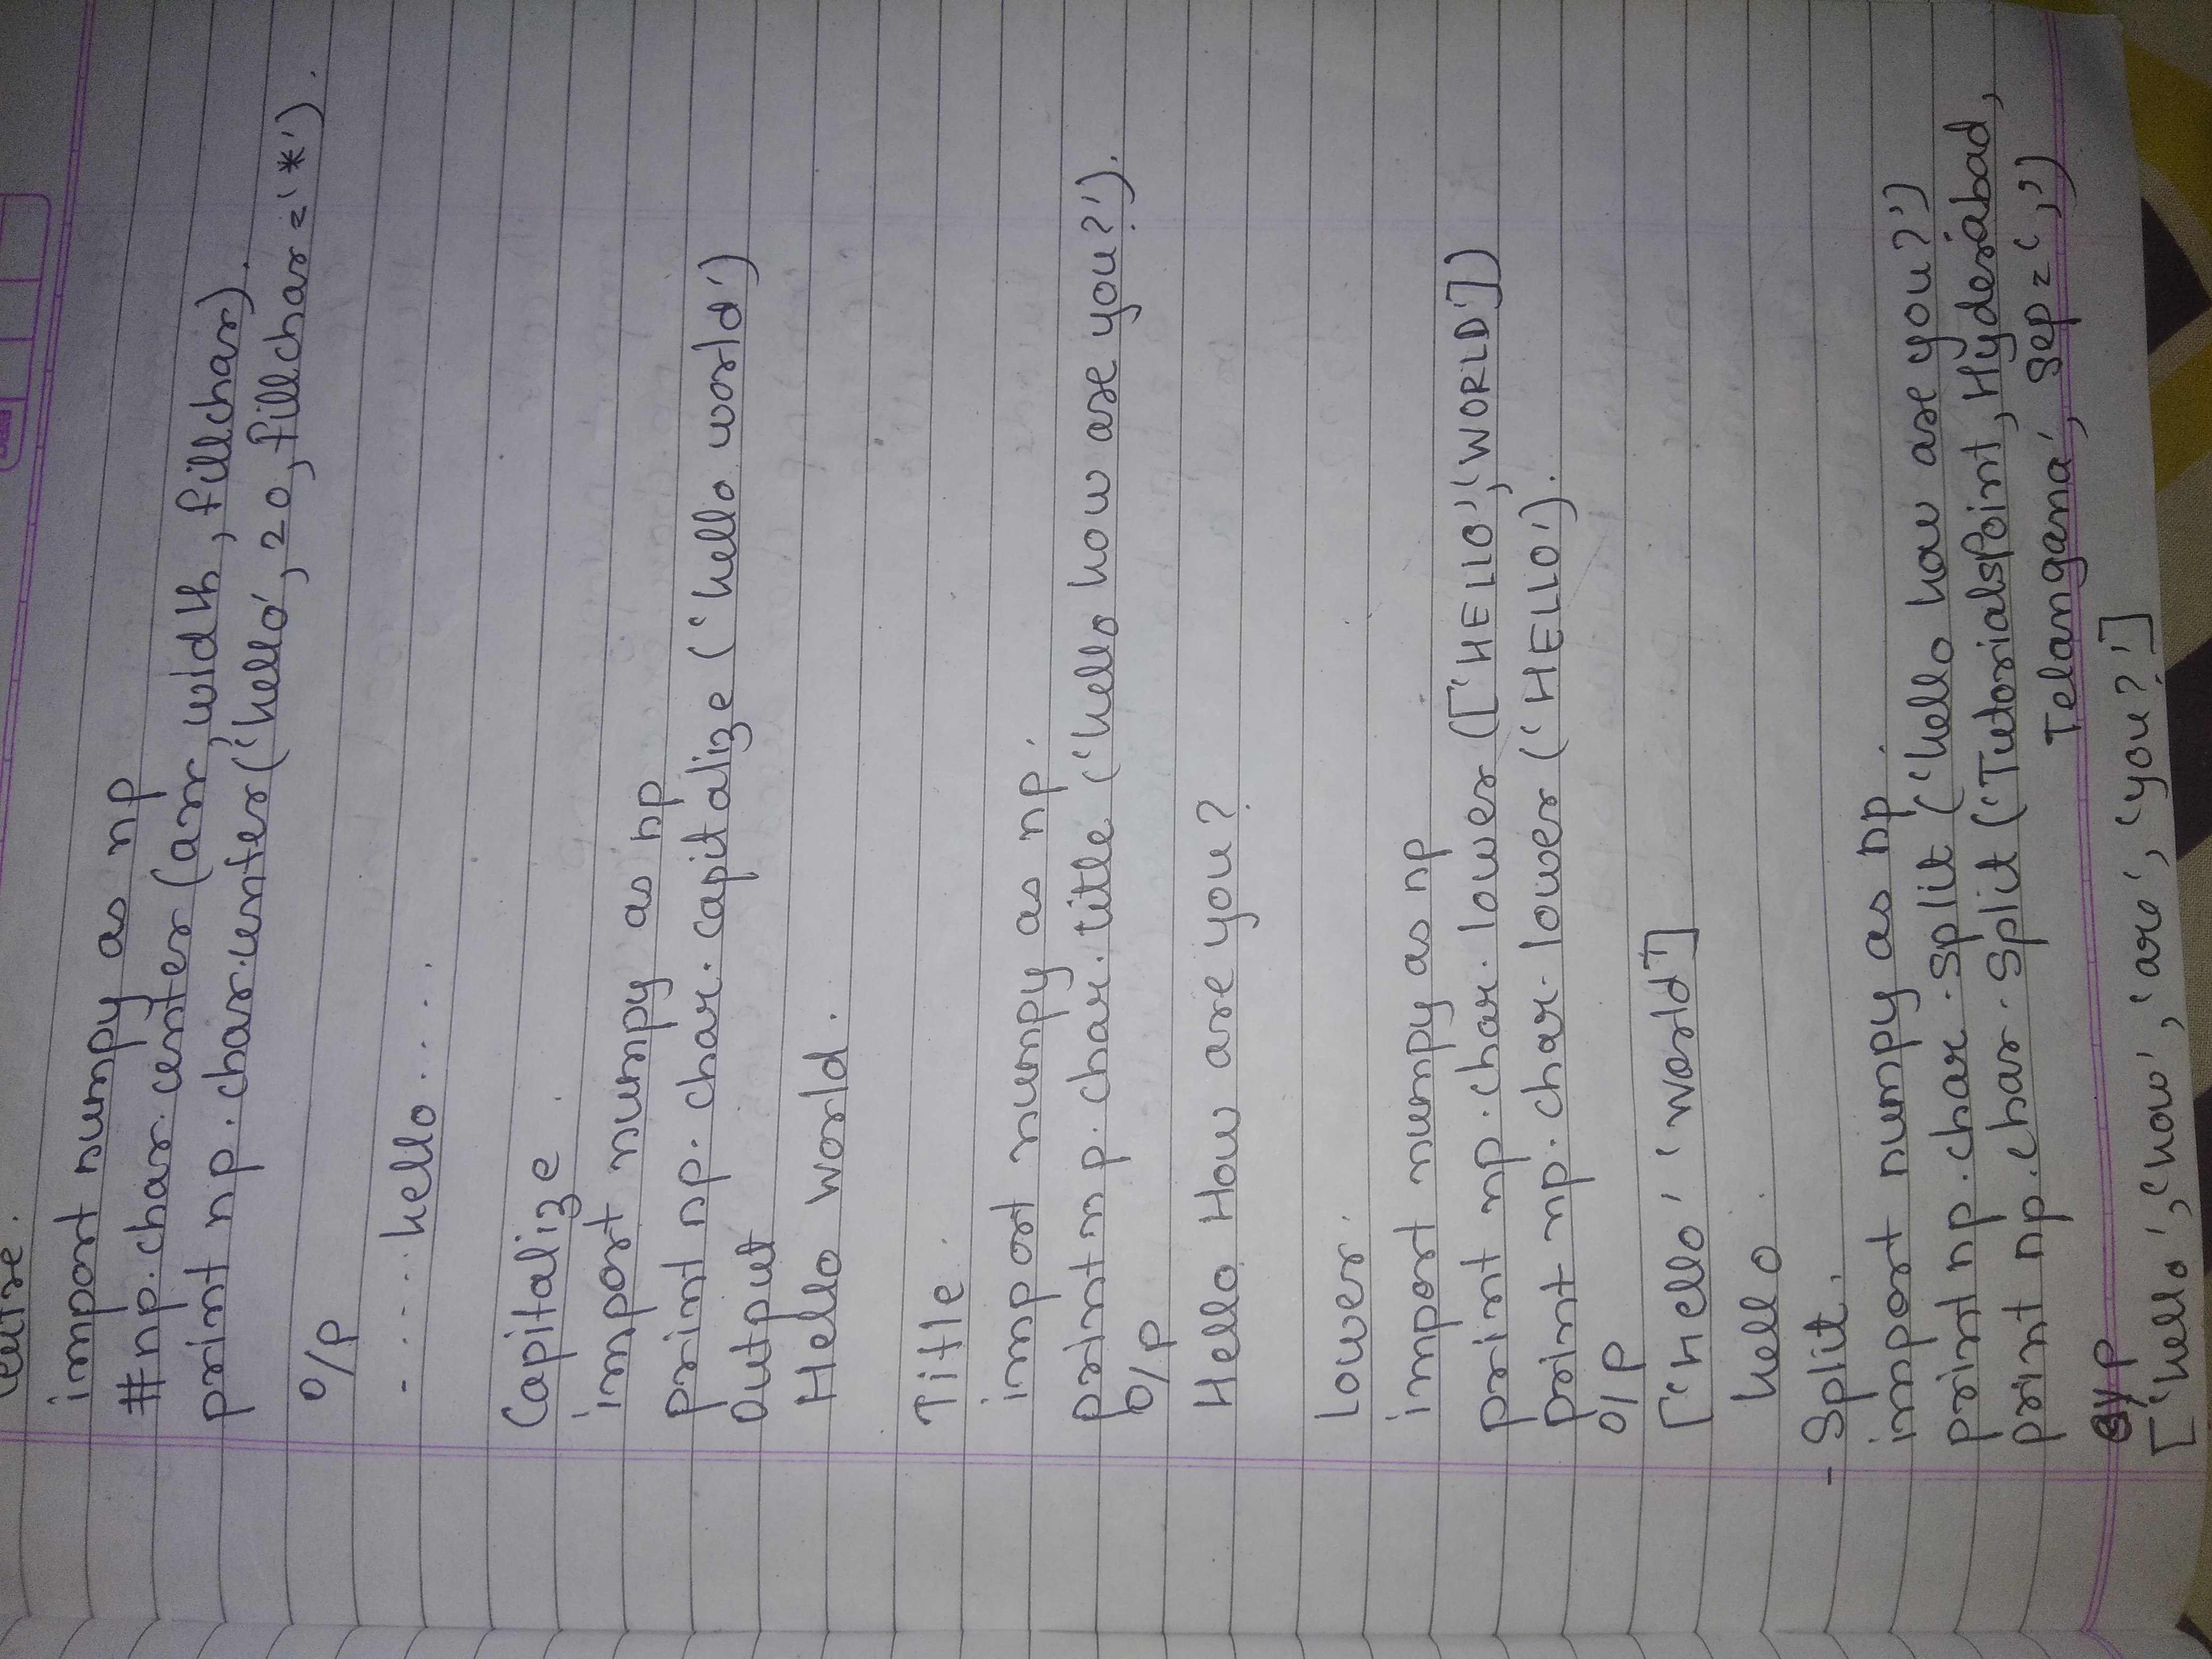 import numpy as np
#np.char.center (arr, width, fillchar).
print np.char.center('hello', 20, fillchar='*').
O/P
....hello.....
Capitalize
import numpy as np
print np.char.capitalize ('hello world')
Output
Hello world.
Title.
import numpy as np.
print np.char.title ('hello how are you?').
O/P
Hello How are you?
Lower.
import numpy as np
print np.char.lower (['HELLO','WORLD'])
print np.char.lower ('HELLO').
O/P
['hello' 'world']
hello.
- Split.
import numpy as np.
print np.char.split ('hello how are you?')
print np.char.split ('TutorialsPoint, Hyderabad,
Telangana', sep=',')
O/P
['hello', 'how', 'are', 'you?']